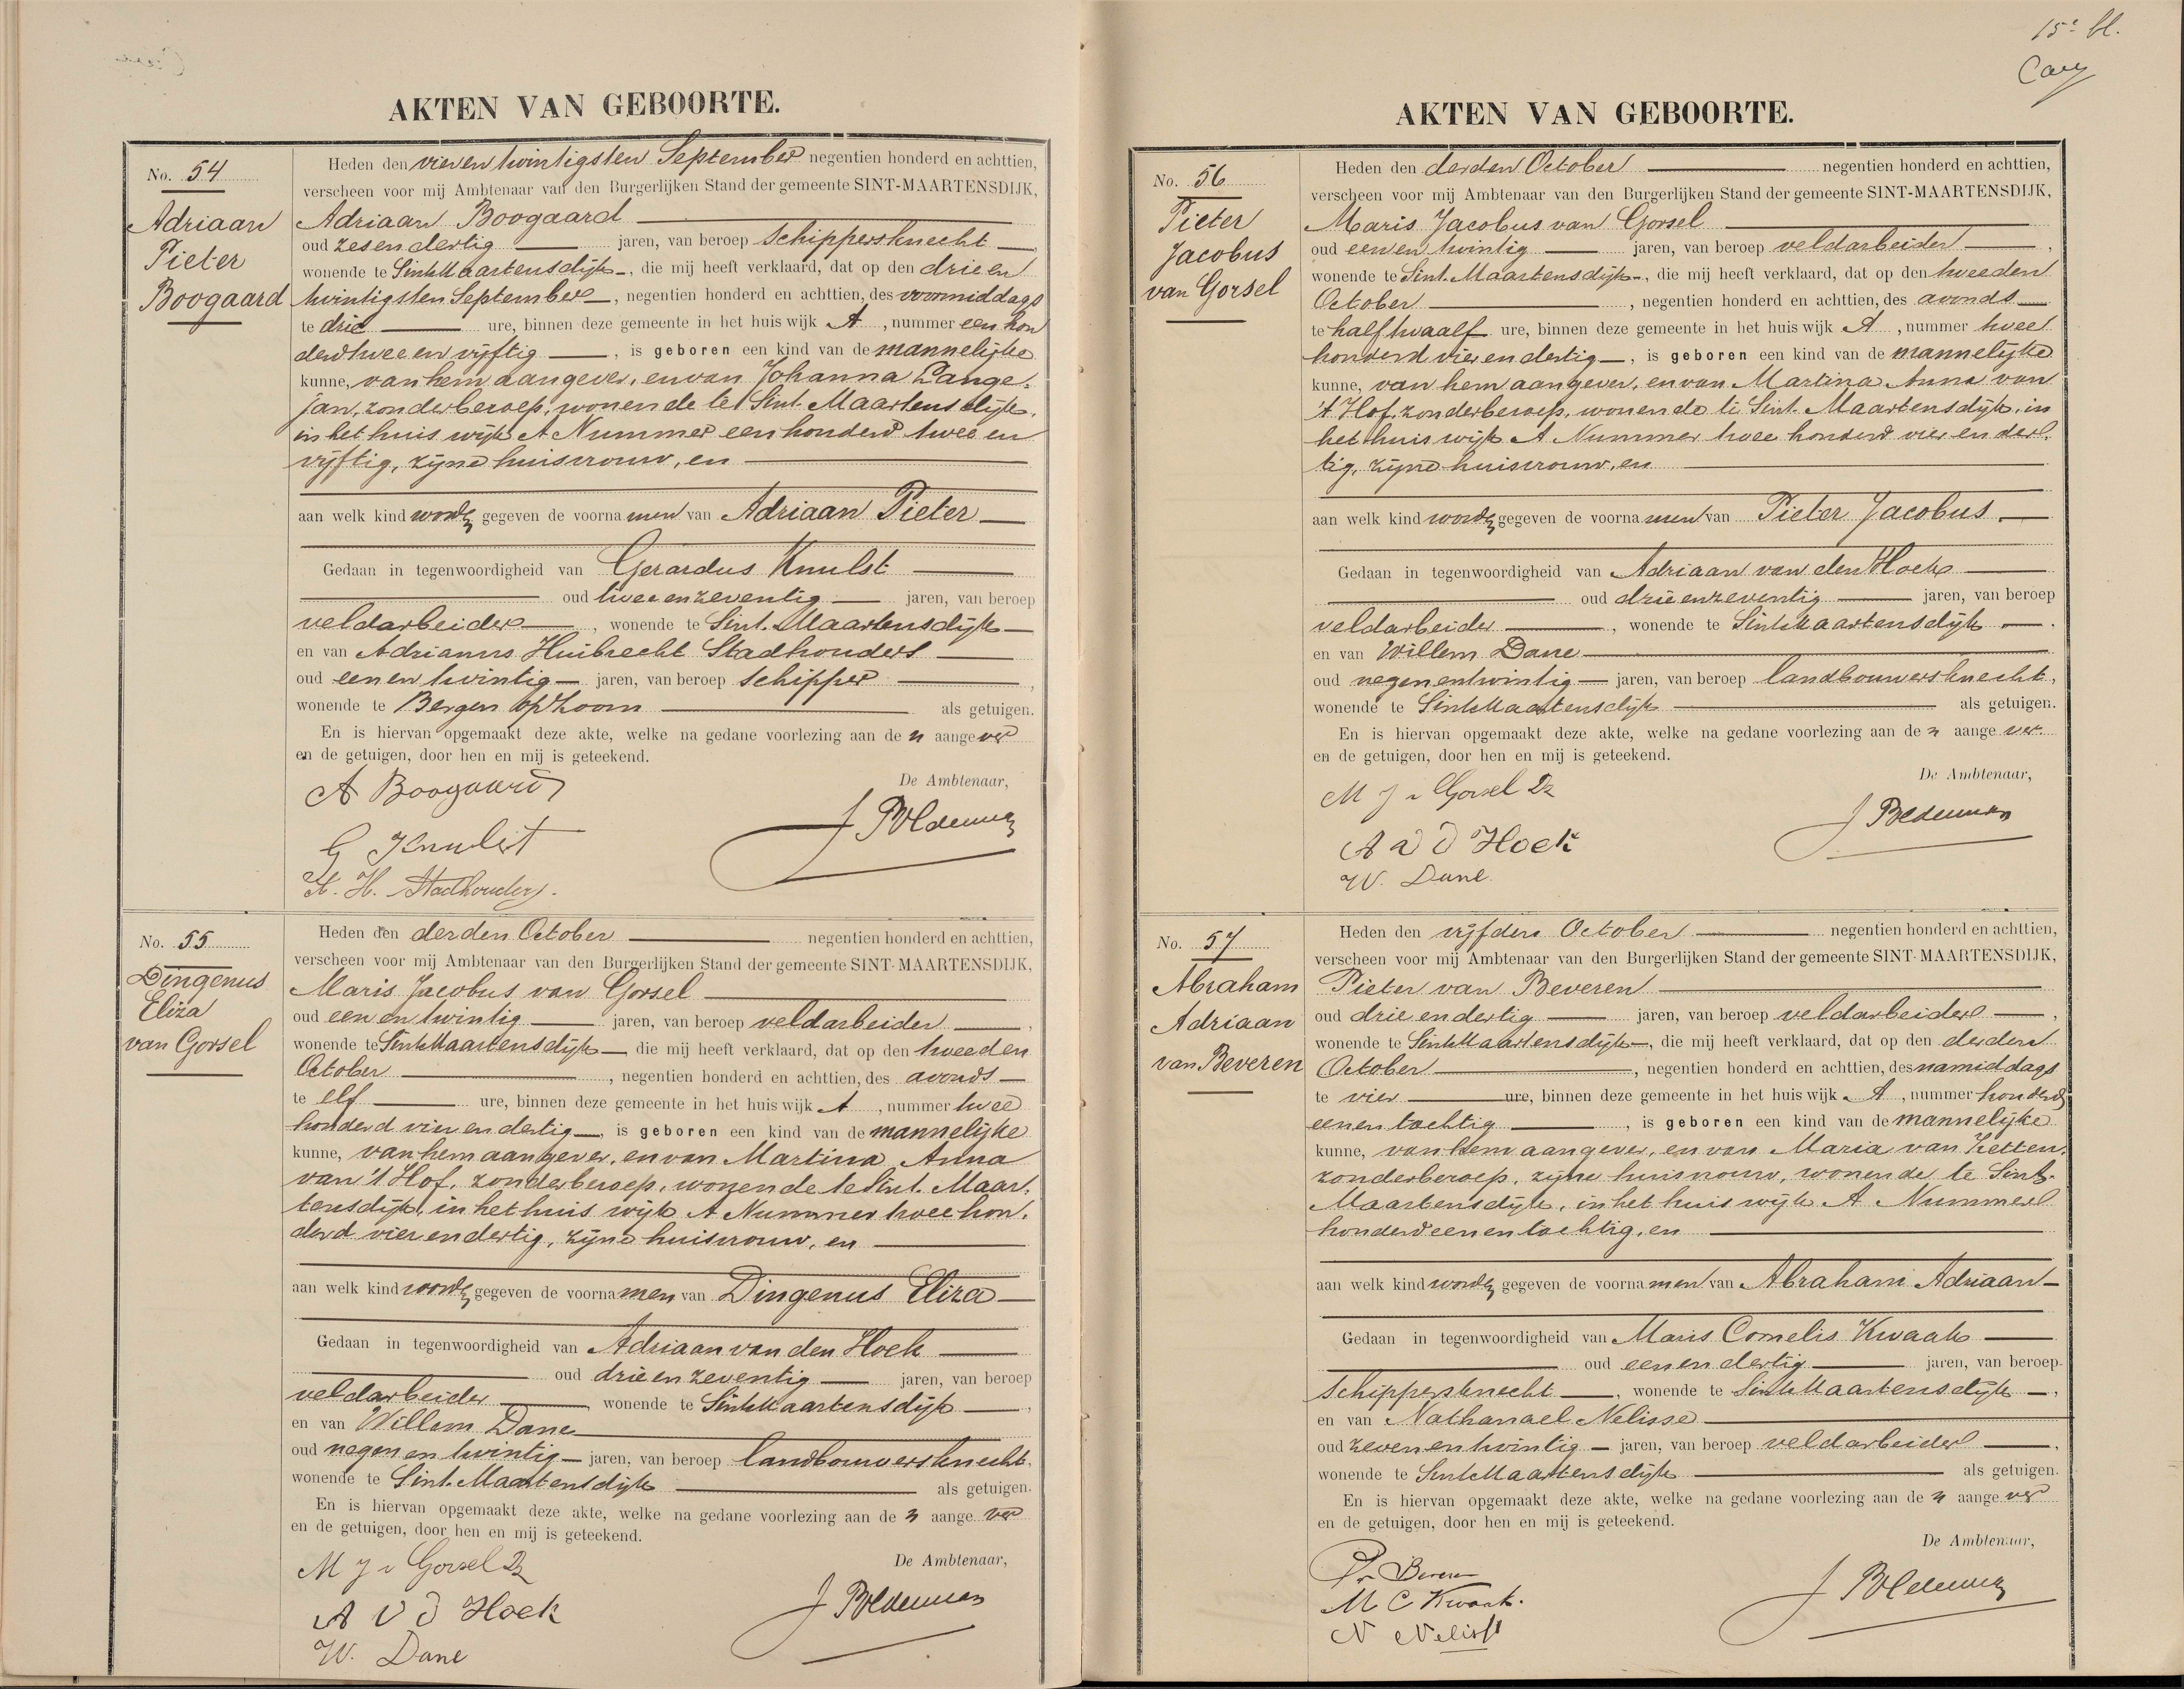 AKTEN VAN GEBOORTE.
No. 54
Adriaan
Pieter
Boogaard
Heden den vier en twintigsten September negentien honderd en achttien,
verscheen voor mij Ambtenaar van den Burgerlijken Stand der gemeente SINT-MAARTENSDIJK,
Adriaan Boogaard
oud zes en dertig jaren, van beroep Schippersknecht,
wonende te Sint Maartensdijk, die mij heeft verklaard, dat op den drie en
twintigsten September, negentien honderd en achttien, des voormiddags
te drie ure, binnen deze gemeente in het huis wijk A, nummer een hon
derd twee en vijftig, is geboren een kind van de mannelijke
kunne, van hem aangever, en van Johanna Lange-
jan, zonder beroep, wonende te Sint-Maartensdijk,
in het huis wijk A Nummer een honderd twee en
vijftig, zijne huisvrouw, en
aan welk kind worden gegeven de voornamen van Adriaan Pieter
Gedaan in tegenwoordigheid van Gerardus Knulst
oud twee en zeventig jaren, van beroep
veldarbeider, wonende te Sint-Maartensdijk
en van Adrianus Huibrecht Stadhouders
oud een en twintig jaren, van beroep Schipper,
wonende te Bergen op Zoom als getuigen.
En is hiervan opgemaakt deze akte, welke na gedane voorlezing aan den aangever
en de getuigen, door hen en mij is geteekend.
De Ambtenaar,
A Boogaard
G Knulst
A. H. Stadhouders.
No. 55
Dingenus
Eliza
van Gorsel
Heden den derden October negentien honderd en achttien,
verscheen voor mij Ambtenaar van den Burgerlijken Stand der gemeente SINT-MAARTENSDIJK,
Maris Jacobus van Gorsel
oud een en twintig jaren, van beroep veldarbeider,
wonende te Sint Maartensdijk die mij heeft verklaard, dat op den tweeden
October, negentien honderd en achttien, des avonds
te elf ure, binnen deze gemeente in het huis wijk A, nummer twee
honderd vier en dertig, is geboren een kind van de mannelijke
kunne, van hem aangever, en van Martina Anna
van 't Hof, zonder beroep, wonende te Sint-Maar-
tensdijk, in het huis wijk A Nummer twee hon-
derd vier en dertig, zijne huisvrouw, en
aan welk kind worden gegeven de voornamen van Dingenus Eliza
Gedaan in tegenwoordigheid van Adriaan van den Hoek
oud drie en zeventig jaren, van beroep
veldarbeider, wonende te Sint Maartensdijk,
en van Willem Dane
oud negen en twintig jaren, van beroep landbouwersknecht,
wonende te Sint-Maartensdijk als getuigen.
En is hiervan opgemaakt deze akte, welke na gedane voorlezing aan den aangever
en de getuigen, door hen en mij is geteekend.
De Ambtenaar,
M J v Gorsel Dz
A v d Hoek
W. Dane
15e bl.
AKTEN VAN GEBOORTE.
No. 56
Pieter
Jacobus
van Gorsel
Heden den derden October negentien honderd en achttien,
verscheen voor mij Ambtenaar van den Burgerlijken Stand der gemeente SINT-MAARTENSDIJK,
Maris Jacobus van Gorsel
oud een en twintig jaren, van beroep veldarbeider,
wonende te Sint-Maartensdijk, die mij heeft verklaard, dat op den tweeden
October, negentien honderd en achttien, des avonds
te half twaalf ure, binnen deze gemeente in het huis wijk A, nummer twee
honderd vier en dertig, is geboren een kind van de mannelijke
kunne, van hem aangever, en van Martina Anna van
't Hof, zonder beroep, wonende te Sint-Maartensdijk, in
het huis wijk A Nummer twee honderd vier en der-
tig, zijne huisvrouw, en
aan welk kind worden gegeven de voornamen van Pieter Jacobus
Gedaan in tegenwoordigheid van Adriaan van den Hoek
oud drie en zeventig jaren, van beroep
veldarbeider, wonende te Sint Maartensdijk.
en van Willem Dane
oud negen en twintig jaren, van beroep landbouwersknecht,
wonende te Sint Maartensdijk als getuigen.
En is hiervan opgemaakt deze akte, welke na gedane voorlezing aan den aangever
en de getuigen, door hen en mij is geteekend.
De Ambtenaar,
M J v Gorsel Dz
A v d Hoek
W. Dane
No. 57
Abraham
Adriaan
van Beveren
Heden den vijfden October negentien honderd en achttien,
verscheen voor mij Ambtenaar van den Burgerlijken Stand der gemeente SINT-MAARTENSDIJK,
Pieter van Beveren
oud drie en dertig jaren, van beroep veldarbeider,
wonende te Sint Maartensdijk, die mij heeft verklaard, dat op den derden
October, negentien honderd en achttien, des namiddags
te vier ure, binnen deze gemeente in het huis wijk A, nummer honderd
een en tachtig, is geboren een kind van de mannelijke
kunne, van hem aangever, en van Maria van Ketten,
zonder beroep, zijne huisvrouw, wonende te Sint-
Maartensdijk, in het huis wijk A Nummer
honderd een en tachtig, en
aan welk kind worden gegeven de voornamen van Abraham Adriaan
Gedaan in tegenwoordigheid van Maris Cornelis Kwaak
oud een en dertig jaren, van beroep
Schippersknecht, wonende te Sint Maartensdijk,
en van Nathanael Nelisse
oud zeven en twintig jaren, van beroep veldarbeider,
wonende te Sint Maartensdijk als getuigen.
En is hiervan opgemaakt deze akte, welke na gedane voorlezing aan den aangever
en de getuigen, door hen en mij is geteekend.
De Ambtenaar,
P v Beveren
M C Kwaak.
N Nelisse